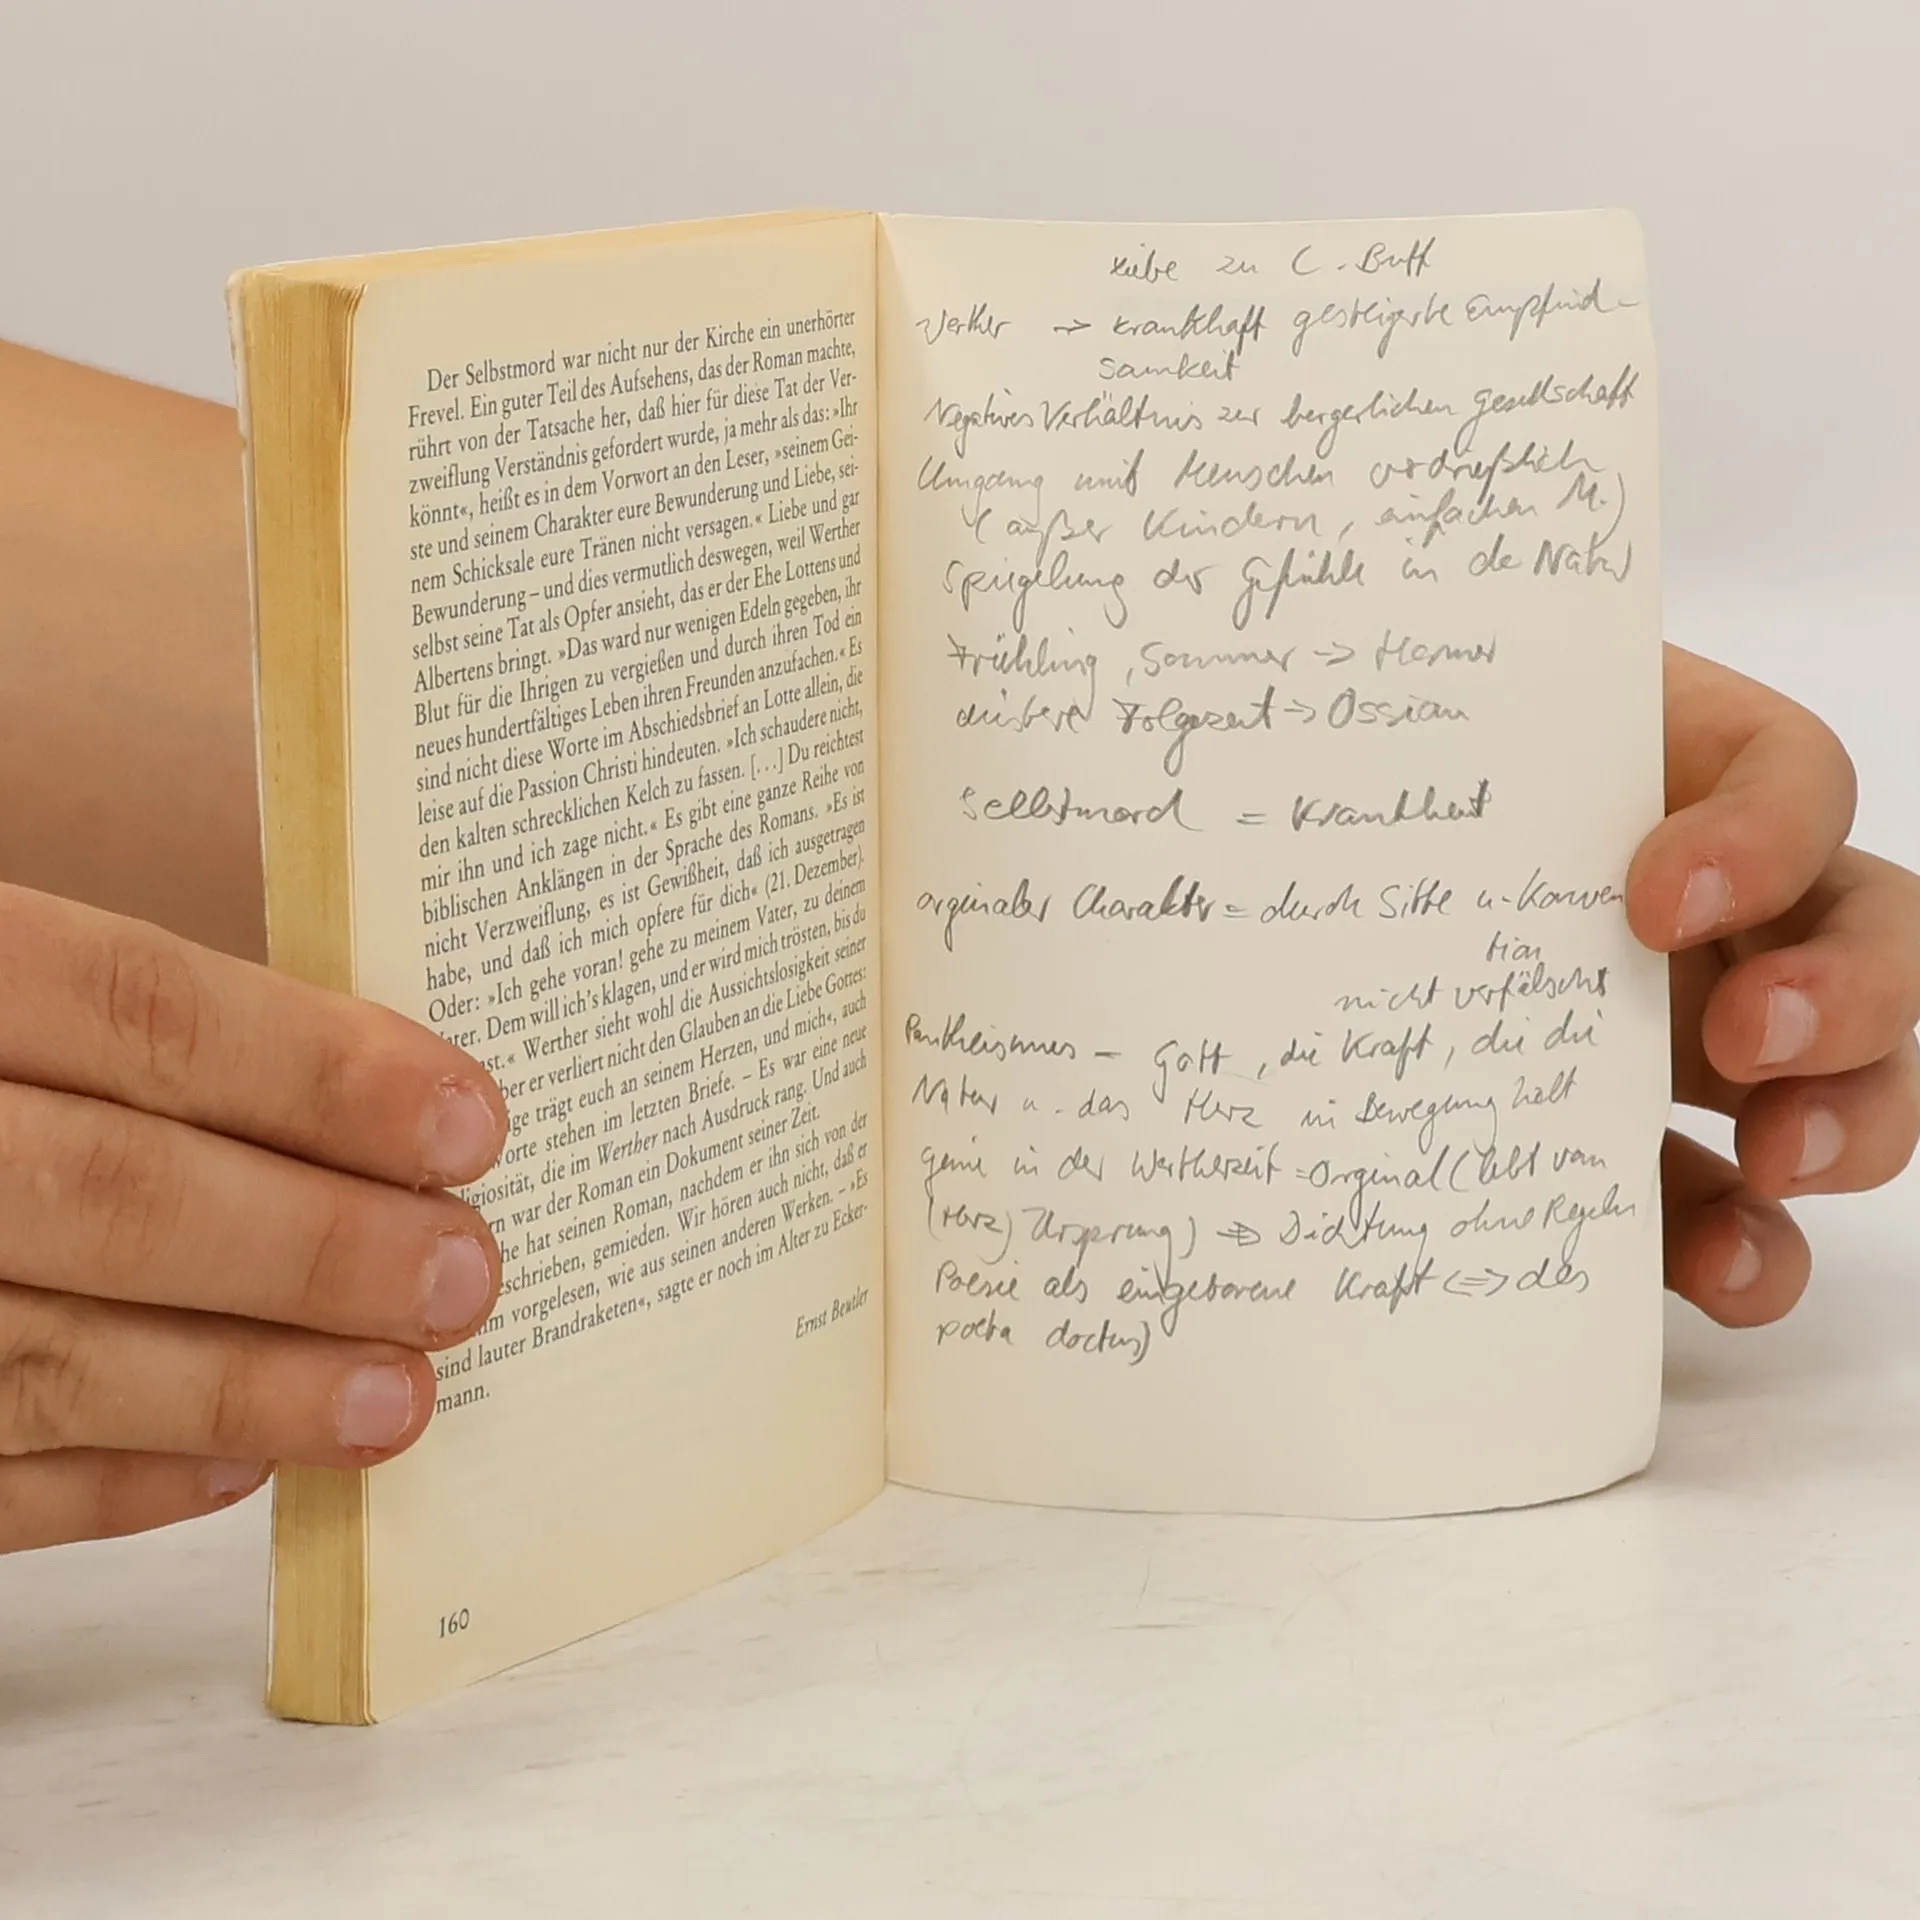 Der Selbstmord war nicht nur der Kirche ein unerhörter
Frevel. Ein guter Teil des Aufsehens, das der Roman machte,
rührt von der Tatsache her, daß hier für diese Tat der Ver-
zweiflung Verständnis gefordert wurde, ja mehr als das: »Ihr
könnt«, heißt es in dem Vorwort an den Leser, »seinem Gei-
ste und seinem Charakter eure Bewunderung und Liebe, sei-
nem Schicksale eure Tränen nicht versagen.« Liebe und gar
Bewunderung – und dies vermutlich deswegen, weil Werther
selbst seine Tat als Opfer ansieht, das er der Ehe Lottens und
Albertens bringt. »Das ward nur wenigen Edeln gegeben, ihr
Blut für die Ihrigen zu vergießen und durch ihren Tod ein
neues hundertfältiges Leben ihren Freunden anzufachen.« Es
sind nicht diese Worte im Abschiedsbrief an Lotte allein, die
leise auf die Passion Christi hindeuten. »Ich schaudere nicht,
den kalten schrecklichen Kelch zu fassen. [...] Du reichtest
mir ihn und ich zage nicht.« Es gibt eine ganze Reihe von
biblischen Anklängen in der Sprache des Romans. »Es ist
nicht Verzweiflung, es ist Gewißheit, daß ich ausgetragen
habe, und daß ich mich opfere für dich« (21. Dezember).
Oder: »Ich gehe voran! gehe zu meinem Vater, zu deinem
ater. Dem will ich's klagen, und er wird mich trösten, bis du
st.« Werther sieht wohl die Aussichtslosigkeit seiner
ber er verliert nicht den Glauben an die Liebe Gottes:
ige trägt euch an seinem Herzen, und mich«, auch
orte stehen im letzten Briefe. – Es war eine neue
ligiosität, die im Werther nach Ausdruck rang. Und auch
rn war der Roman ein Dokument seiner Zeit.
he hat seinen Roman, nachdem er ihn sich von der
schrieben, gemieden. Wir hören auch nicht, daß er
hm vorgelesen, wie aus seinen anderen Werken. – »Es
sind lauter Brandraketen«, sagte er noch im Alter zu Ecker-
mann.
Ernst Beutler
160
Liebe zu C. Buff
Werther -> krankhaft gesteigerte Empfind-
samkeit
Negatives Verhältnis zur bergerlichen Gesellschaft
Umgang mit Menschen verdrießlich
(außer Kindern, einfachen M.)
Spiegelung der Gefühle in de Natur
Frühling, Sommer -> Homer
düstere Folgezeit -> Ossian
Selbstmord = Krankheit
orginaler Charakter = durch Sitte u. Konven
tion
nicht verfälscht
Pantheismus – Gott, die Kraft, die die
Natur u. das Herz in Bewegung hält
Genie in der Wertherzeit = Orginal (lebt von
(Herz) Ursprung) => Dichtung ohne Regeln
Poesie als eingeborene Kraft <=> des
poeta doctus)